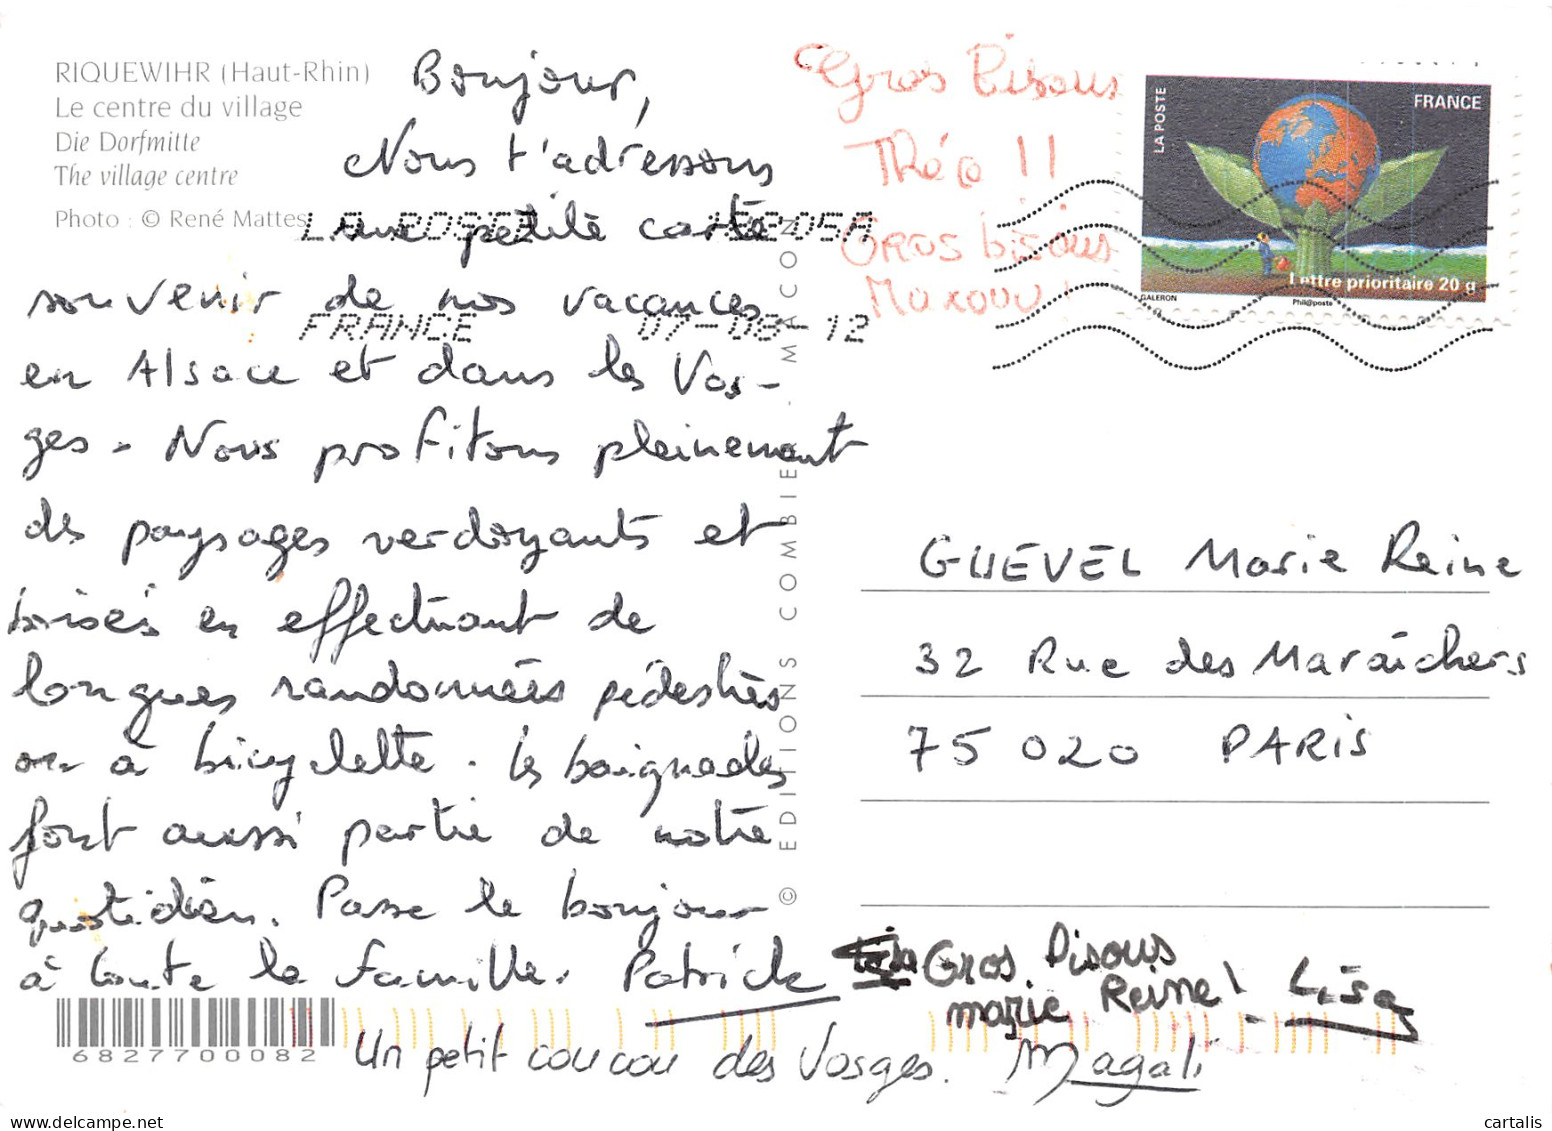 RIQUEWIHR (Haut-Rhin)
Le centre du village
Die Dorfmitte
The village centre
Photo : © René Mattes
Bonjour,
Nous t'adressons
une petite carte
souvenir de nos vacances
en Alsace et dans les Vos-
ges. Nous profitons pleinement
des paysages verdoyants et
boisés en effectuant de
longues randonnées pédestres
ou à bicyclette. Les baignades
font aussi partie de notre
quotidien. Passe le bonjour
à toute la famille. Patrick
Gros Bisous
marie Reine! Lisa
Un petit coucou des Vosges. Magali
6827700082
LA POSTE 05A
FRANCE 07-08-12
© EDITIONS COMBIER - MACON
Gros Bisous
Théo !!
Gros bisous
LA POSTE
FRANCE
Lettre prioritaire 20 g
GALERON
Phil@poste
GUEVEL Marie Reine
32 Rue des Maraîchers
75 020 PARIS
cartalis